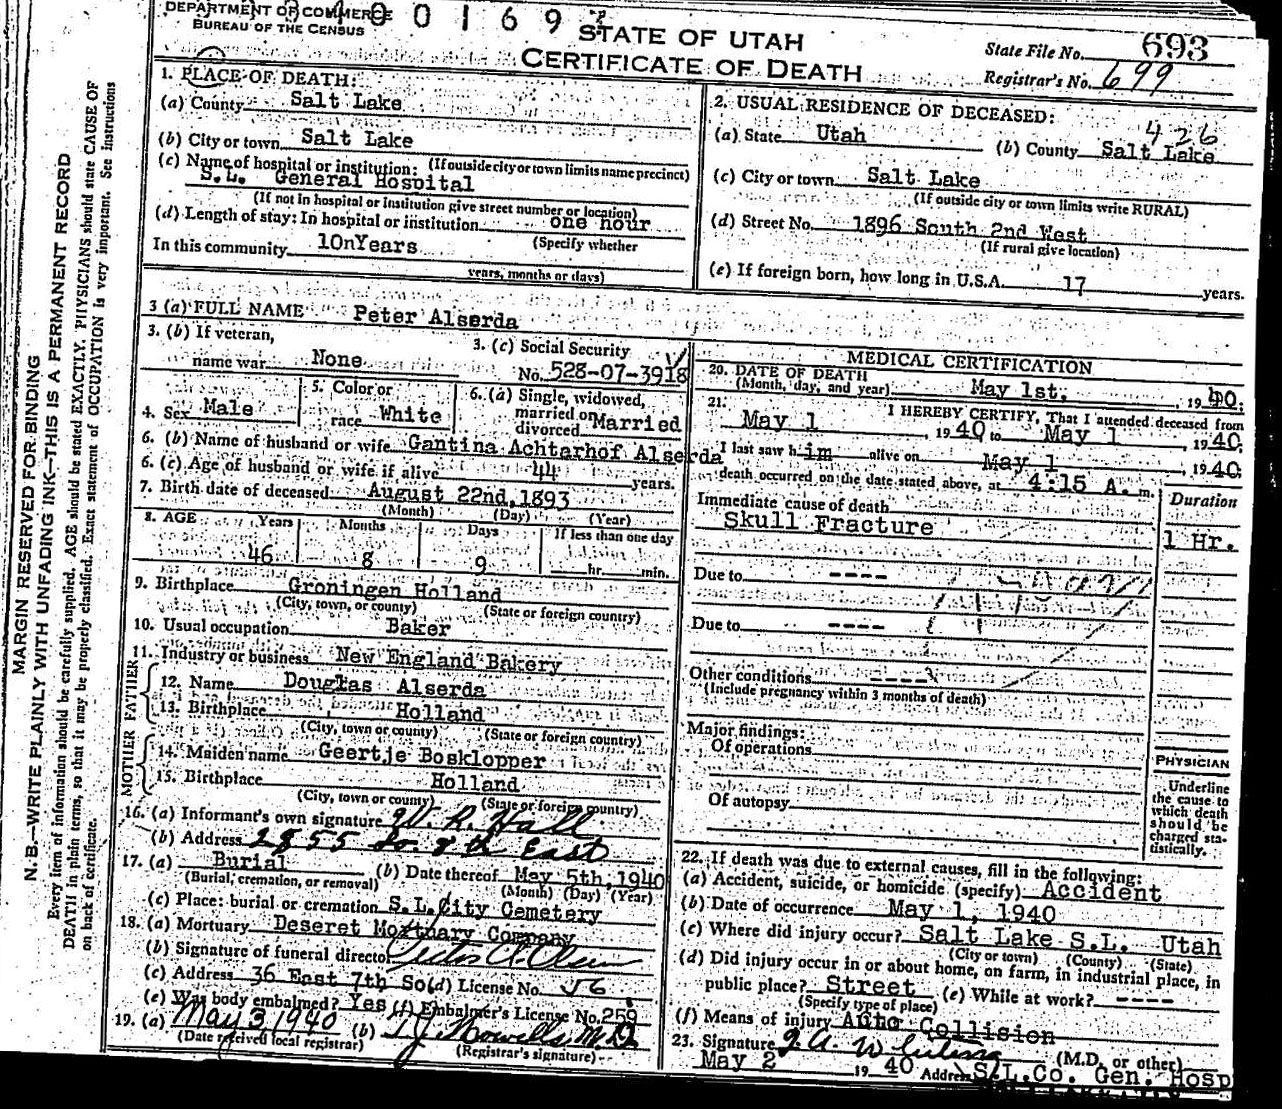 DEPARTMENT OF COMMERCE
BUREAU OF THE CENSUS
0 0 1 6 9
STATE OF UTAH
CERTIFICATE OF DEATH
State File No. 693
Registrar's No. 699
MARGIN RESERVED FOR BINDING
N. B.—WRITE PLAINLY WITH UNFADING INK—THIS IS A PERMANENT RECORD
Every item of information should be carefully supplied. AGE should be stated EXACTLY. PHYSICIANS should state CAUSE OF
DEATH in plain terms, so that it may be properly classified. Exact statement of OCCUPATION is very important. See instructions
on back of certificate.
1. PLACE OF DEATH:
(a) County Salt Lake
(b) City or town Salt Lake
(c) Name of hospital or institution: (If outside city or town limits name precinct)
S.L. General Hospital
(If not in hospital or institution give street number or location)
(d) Length of stay: In hospital or institution one hour
(Specify whether
In this community 10nYears
years, months or days)
2. USUAL RESIDENCE OF DECEASED:
426
(a) State Utah (b) County Salt Lake
(c) City or town Salt Lake
(If outside city or town limits write RURAL)
(d) Street No. 1896 South 2nd West
(If rural give location)
(e) If foreign born, how long in U.S.A. 17 years.
3 (a) FULL NAME Peter Alserda
3. (b) If veteran,
name war None
3. (c) Social Security
No. 528-07-3918
4. Sex Male
5. Color or
race White
6. (a) Single, widowed,
married or
divorced Married
6. (b) Name of husband or wife Gantina Achtarhof Alserda
6. (c) Age of husband or wife if alive 44 years.
7. Birth date of deceased August 22nd, 1893
(Month) (Day) (Year)
8. AGE Years Months Days If less than one day
46 8 9 hr. min.
9. Birthplace Groningen Holland
(City, town, or county) (State or foreign country)
10. Usual occupation Baker
11. Industry or business New England Bakery
FATHER
12. Name Douglas Alserda
13. Birthplace Holland
(City, town or county) (State or foreign country)
MOTHER
14. Maiden name Geertje Bosklopper
15. Birthplace Holland
(City, town or county) (State or foreign country)
16. (a) Informant's own signature W. R. Hall
(b) Address 2855 So. 8th East
17. (a) Burial (b) Date thereof May 5th, 1940
(Burial, cremation, or removal) (Month) (Day) (Year)
(c) Place: burial or cremation S.L. City Cemetery
18. (a) Mortuary Deseret Mortuary Company
(b) Signature of funeral director
(c) Address 36 East 7th So (d) License No. 56
(e) Was body embalmed? Yes (f) Embalmer's License No. 259
19. (a) May 3, 1940 (b) T J Howells, M.D.
(Date received local registrar) (Registrar's signature)
MEDICAL CERTIFICATION
20. DATE OF DEATH
(Month, day, and year) May 1st. , 1940.
21. I HEREBY CERTIFY, That I attended deceased from
May 1 , 1940 to May 1 , 1940.
I last saw him alive on May 1 , 1940.
death occurred on the date stated above, at 4:15 A. m.
Immediate cause of death Duration
Skull Fracture 1 Hr.
Due to ----
Due to ----
Other conditions ----
(Include pregnancy within 3 months of death)
Major findings:
Of operations
Of autopsy
PHYSICIAN
Underline
the cause to
which death
should be
charged sta-
tistically.
22. If death was due to external causes, fill in the following:
(a) Accident, suicide, or homicide (specify) Accident
(b) Date of occurrence May 1, 1940
(c) Where did injury occur? Salt Lake S.L. Utah
(City or town) (County) (State)
(d) Did injury occur in or about home, on farm, in industrial place, in
public place? Street (e) While at work? ----
(Specify type of place)
(f) Means of injury Auto Collision
23. Signature (M.D. or other)
May 2 1940 Address S.L.Co. Gen. Hosp